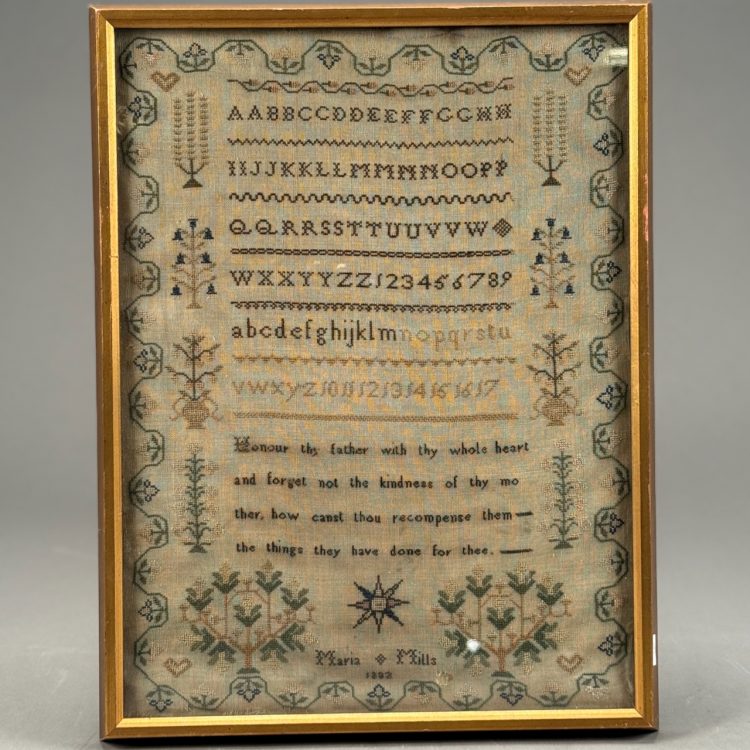 AABBCCDDEEFFGGHH
IIJJKKLLMMNNOOPP
QQRRSSTTUUVVW
WXXYYZZ123456789
abcdefghijklmnopqrstu
vwxyz1011121314151617
Honour thy father with thy whole heart
and forget not the kindness of thy mo
ther, how canst thou recompense them—
the things they have done for thee.—
Maria Mills